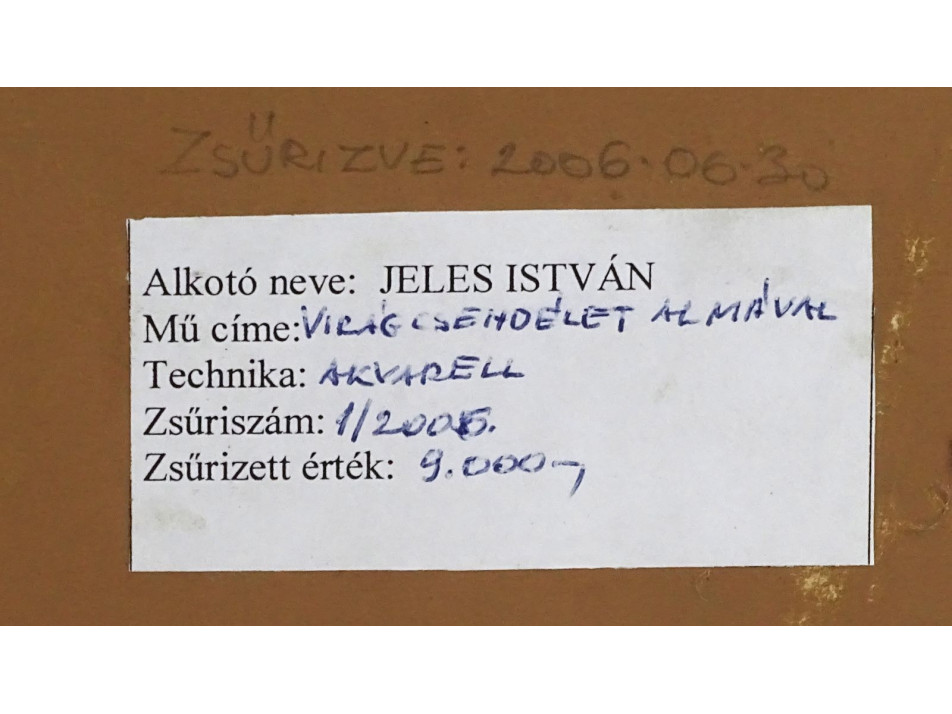 ZSŰRIZVE: 2006.06.30
Alkotó neve: JELES ISTVÁN
Mű címe: VIRÁGCSENDÉLET ALMÁVAL
Technika: AKVARELL
Zsűriszám: 1/2006.
Zsűrizett érték: 9.000-,